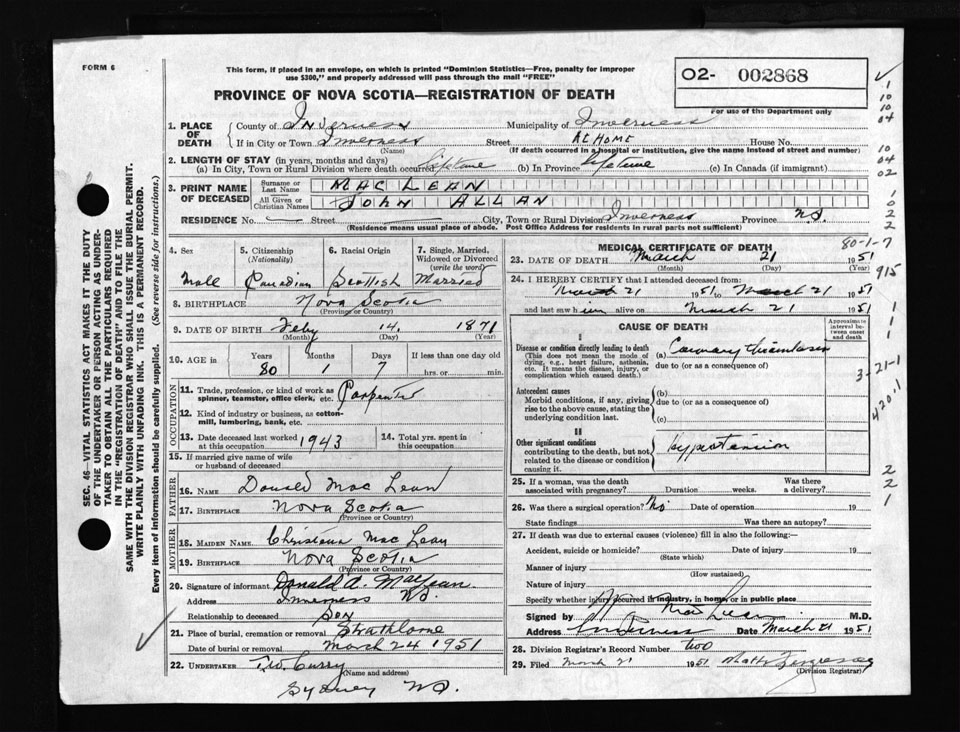 FORM 6
This form, if placed in an envelope, on which is printed "Dominion Statistics—Free, penalty for improper
use $300," and properly addressed will pass through the mail "FREE"
PROVINCE OF NOVA SCOTIA—REGISTRATION OF DEATH
O2- 002868
For use of the Department only
1. PLACE OF DEATH
County of Inverness Municipality of Inverness
If in City or Town Inverness Street At Home House No.
(Name) (If death occurred in a hospital or institution, give the name instead of street and number)
2. LENGTH OF STAY (in years, months and days)
(a) In City, Town or Rural Division where death occurred Lifetime (b) In Province lifetime (c) In Canada (if immigrant)
3. PRINT NAME OF DECEASED
Surname or Last Name MAC LEAN
All Given or Christian Names JOHN ALLAN
RESIDENCE No. — Street — City, Town or Rural Division Inverness Province N.S.
(Residence means usual place of abode. Post Office Address for residents in rural parts not sufficient)
4. Sex 5. Citizenship (Nationality) 6. Racial Origin 7. Single, Married, Widowed or Divorced (write the word)
Male Canadian Scottish Married
8. BIRTHPLACE Nova Scotia
(Province or Country)
9. DATE OF BIRTH Feby 14. 1871
(Month) (Day) (Year)
10. AGE in Years Months Days If less than one day
80 1 7 hrs. or min.
OCCUPATION
11. Trade, profession, or kind of work as spinner, teamster, office clerk, etc. Carpenter
12. Kind of industry or business, as cotton-mill, lumbering, bank, etc.
13. Date deceased last worked at this occupation 1943 14. Total yrs. spent in this occupation
15. If married give name of wife or husband of deceased
FATHER
16. NAME Donald Mac Lean
17. BIRTHPLACE Nova Scotia
(Province or Country)
MOTHER
18. MAIDEN NAME Christena Mac Lean
19. BIRTHPLACE Nova Scotia
(Province or Country)
20. Signature of informant Donald A. MacLean.
Address Inverness NS.
Relationship to deceased Son
21. Place of burial, cremation or removal Strathlorne
Date of burial or removal March 24 1951
22. UNDERTAKER Curry
(Name and address)
Sydney NS.
MEDICAL CERTIFICATE OF DEATH
23. DATE OF DEATH March 21 1951
(Month) (Day) (Year)
24. I HEREBY CERTIFY that I attended deceased from:
March 21 1951 to March 21 1951
and last saw him alive on March 21 1951
CAUSE OF DEATH
Approximate interval between onset and death
I
Disease or condition directly leading to death (a) Coronary thrombosis
(This does not mean the mode of dying, e.g., heart failure, asthenia, etc. It means the disease, injury, or complication which caused death.)
due to (or as a consequence of)
Antecedent causes
Morbid conditions, if any, giving rise to the above cause, stating the underlying condition last.
(b)
due to (or as a consequence of)
(c)
II
Other significant conditions contributing to the death, but not related to the disease or condition causing it.
Hypertension
25. If a woman, was the death associated with pregnancy? Duration weeks. Was there a delivery?
26. Was there a surgical operation? No Date of operation 19
State findings Was there an autopsy?
27. If death was due to external causes (violence) fill in also the following:—
Accident, suicide or homicide? Date of injury 19
(State which)
Manner of injury
(How sustained)
Nature of injury
Specify whether injury occurred in industry, in home, or in public place
Signed by MacLean M.D.
Address Inverness Date March 21 1951
28. Division Registrar's Record Number two
29. Filed March 21 1951
(Division Registrar)
SEC. 46—VITAL STATISTICS ACT MAKES IT THE DUTY
OF THE UNDERTAKER OR PERSON ACTING AS UNDER-
TAKER TO OBTAIN ALL THE PARTICULARS REQUIRED
IN THE "REGISTRATION OF DEATH" AND TO FILE THE
SAME WITH THE DIVISION REGISTRAR WHO SHALL ISSUE THE BURIAL PERMIT.
WRITE PLAINLY WITH UNFADING INK. THIS IS A PERMANENT RECORD.
Every item of information should be carefully supplied. (See reverse side for instructions.)
1
10
10
04
10
04
02
1
0
2
2
80-1-7
915
1
1
1
3-21-1
420.1
2
2
1